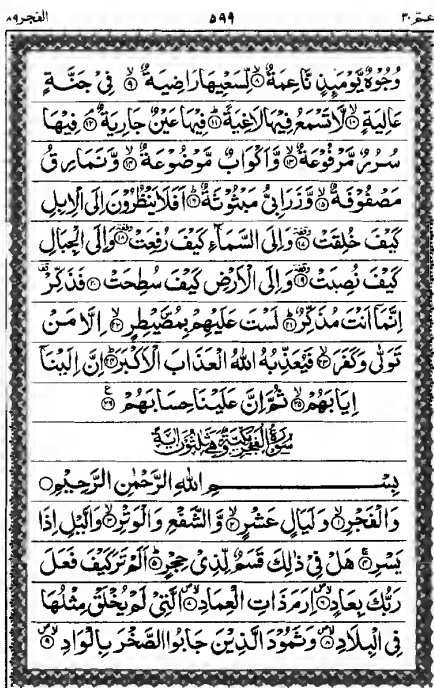 الفجر ٨٩ ٥٩٩ عمّ ٣٠
وُجُوْهٌ يَّوْمَىِٕذٍ نَّاعِمَةٌ ۙ۝٨ لِّسَعْیِهَا رَاضِیَةٌ ۙ۝٩ فِیْ جَنَّةٍ
عَالِیَةٍ ۙ۝١٠ لَّا تَسْمَعُ فِیْهَا لَاغِیَةً ؕ۝١١ فِیْهَا عَیْنٌ جَارِیَةٌ ۘ۝١٢ فِیْهَا
سُرُرٌ مَّرْفُوْعَةٌ ۙ۝١٣ وَّاَكْوَابٌ مَّوْضُوْعَةٌ ۙ۝١٤ وَّنَمَارِقُ
مَصْفُوْفَةٌ ۙ۝١٥ وَّزَرَابِیُّ مَبْثُوْثَةٌ ؕ۝١٦ اَفَلَا یَنْظُرُوْنَ اِلَى الْاِبِلِ
كَیْفَ خُلِقَتْ ۥ۝١٧ وَاِلَى السَّمَآءِ كَیْفَ رُفِعَتْ ۥ۝١٨ وَاِلَى الْجِبَالِ
كَیْفَ نُصِبَتْ ۥ۝١٩ وَاِلَى الْاَرْضِ كَیْفَ سُطِحَتْ ۥ۝٢٠ فَذَكِّرْ ؕ۫
اِنَّمَاۤ اَنْتَ مُذَكِّرٌ ؕ۝٢١ لَسْتَ عَلَیْهِمْ بِمُصَۜیْطِرٍ ۙ۝٢٢ اِلَّا مَنْ
تَوَلّٰى وَكَفَرَ ۙ۝٢٣ فَیُعَذِّبُهُ اللّٰهُ الْعَذَابَ الْاَكْبَرَ ؕ۝٢٤ اِنَّ اِلَیْنَاۤ
اِیَابَهُمْ ۙ۝٢٥ ثُمَّ اِنَّ عَلَیْنَا حِسَابَهُمْ ۠۝٢٦
سُوْرَةُ الْفَجْرِ مَكِّیَّةٌ وَّهِیَ ثَلٰثُوْنَ اٰیَةً
بِسْمِ اللّٰهِ الرَّحْمٰنِ الرَّحِیْمِ ۝
وَالْفَجْرِ ۙ۝١ وَلَیَالٍ عَشْرٍ ۙ۝٢ وَّالشَّفْعِ وَالْوَتْرِ ۙ۝٣ وَالَّیْلِ اِذَا
یَسْرِ ۚ۝٤ هَلْ فِیْ ذٰلِكَ قَسَمٌ لِّذِیْ حِجْرٍ ؕ۝٥ اَلَمْ تَرَ كَیْفَ فَعَلَ
رَبُّكَ بِعَادٍ ۪ۙ۝٦ اِرَمَ ذَاتِ الْعِمَادِ ۪ۙ۝٧ الَّتِیْ لَمْ یُخْلَقْ مِثْلُهَا
فِی الْبِلَادِ ۪ۙ۝٨ وَثَمُوْدَ الَّذِیْنَ جَابُوا الصَّخْرَ بِالْوَادِ ۪ۙ۝٩